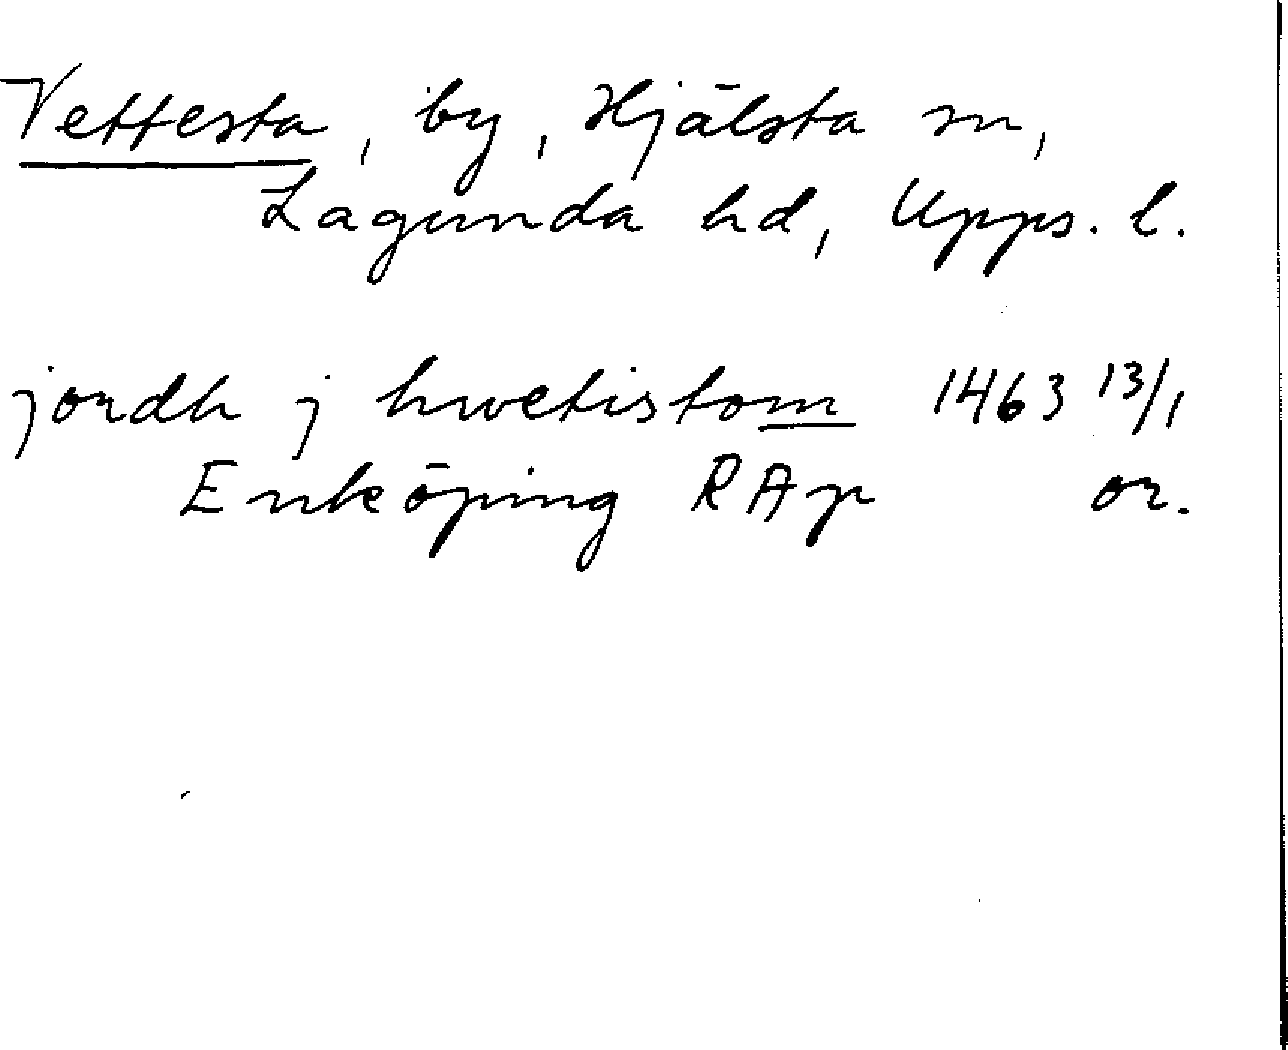 Vettesta, by, Hjälsta sn,
Lagunda hd, Upps. l.
jordh j hwetistom 1463 13/1
Enköping RAp or.